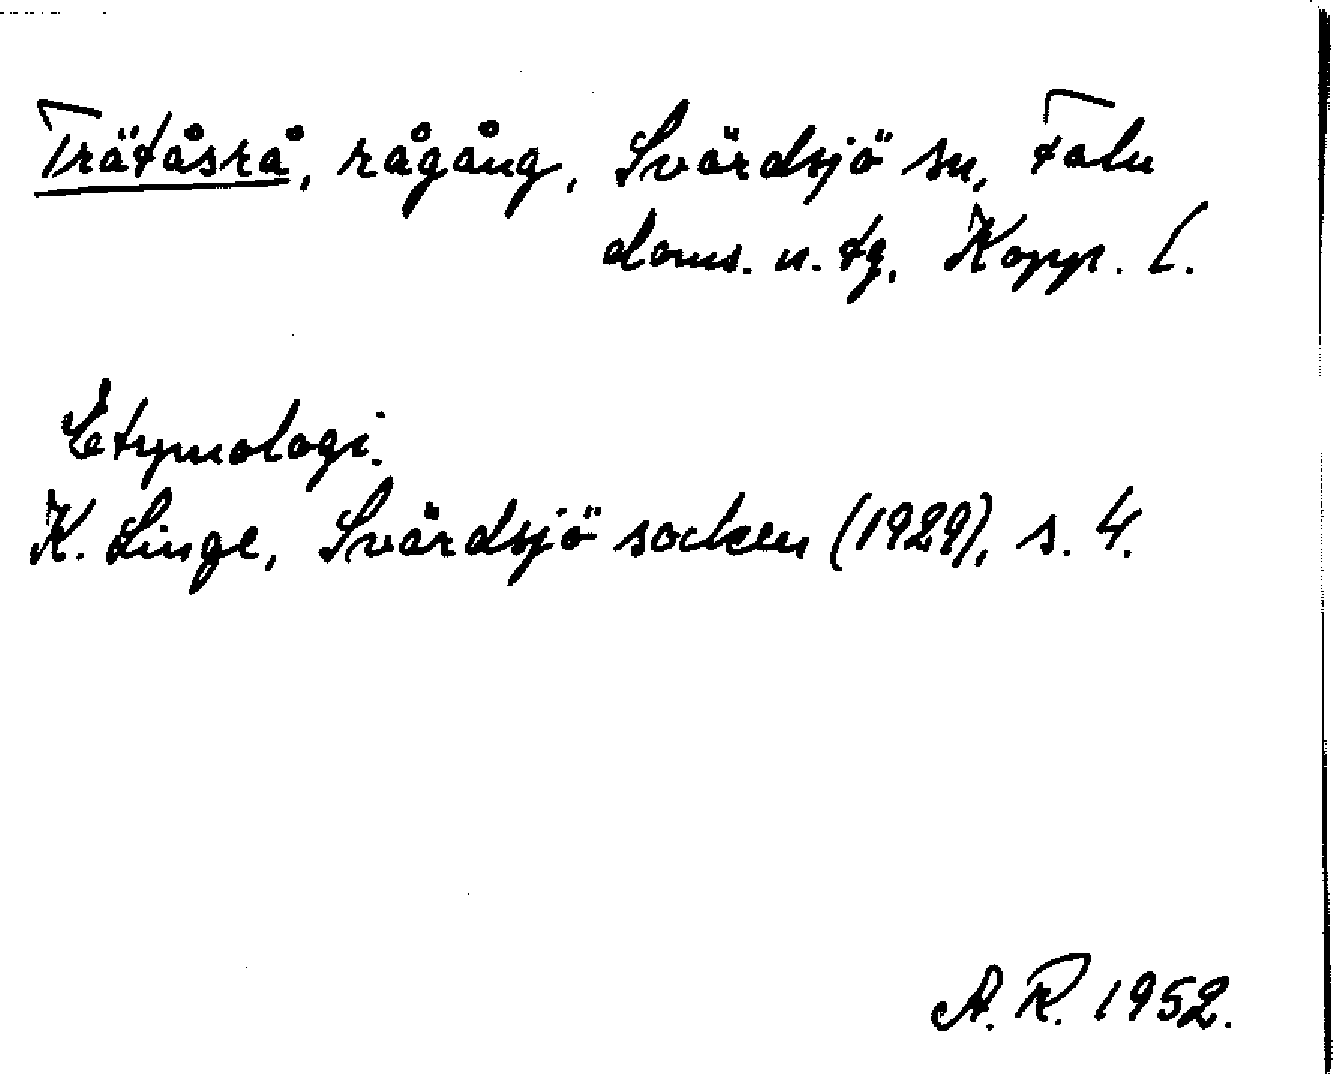 Trätåsrå, rågång, Svärdsjö sn, Falu
doms. n. tg, Kopp. l.
Etymologi.
K. Linge, Svärdsjö socken (1929), s. 4.
A. R. 1952.